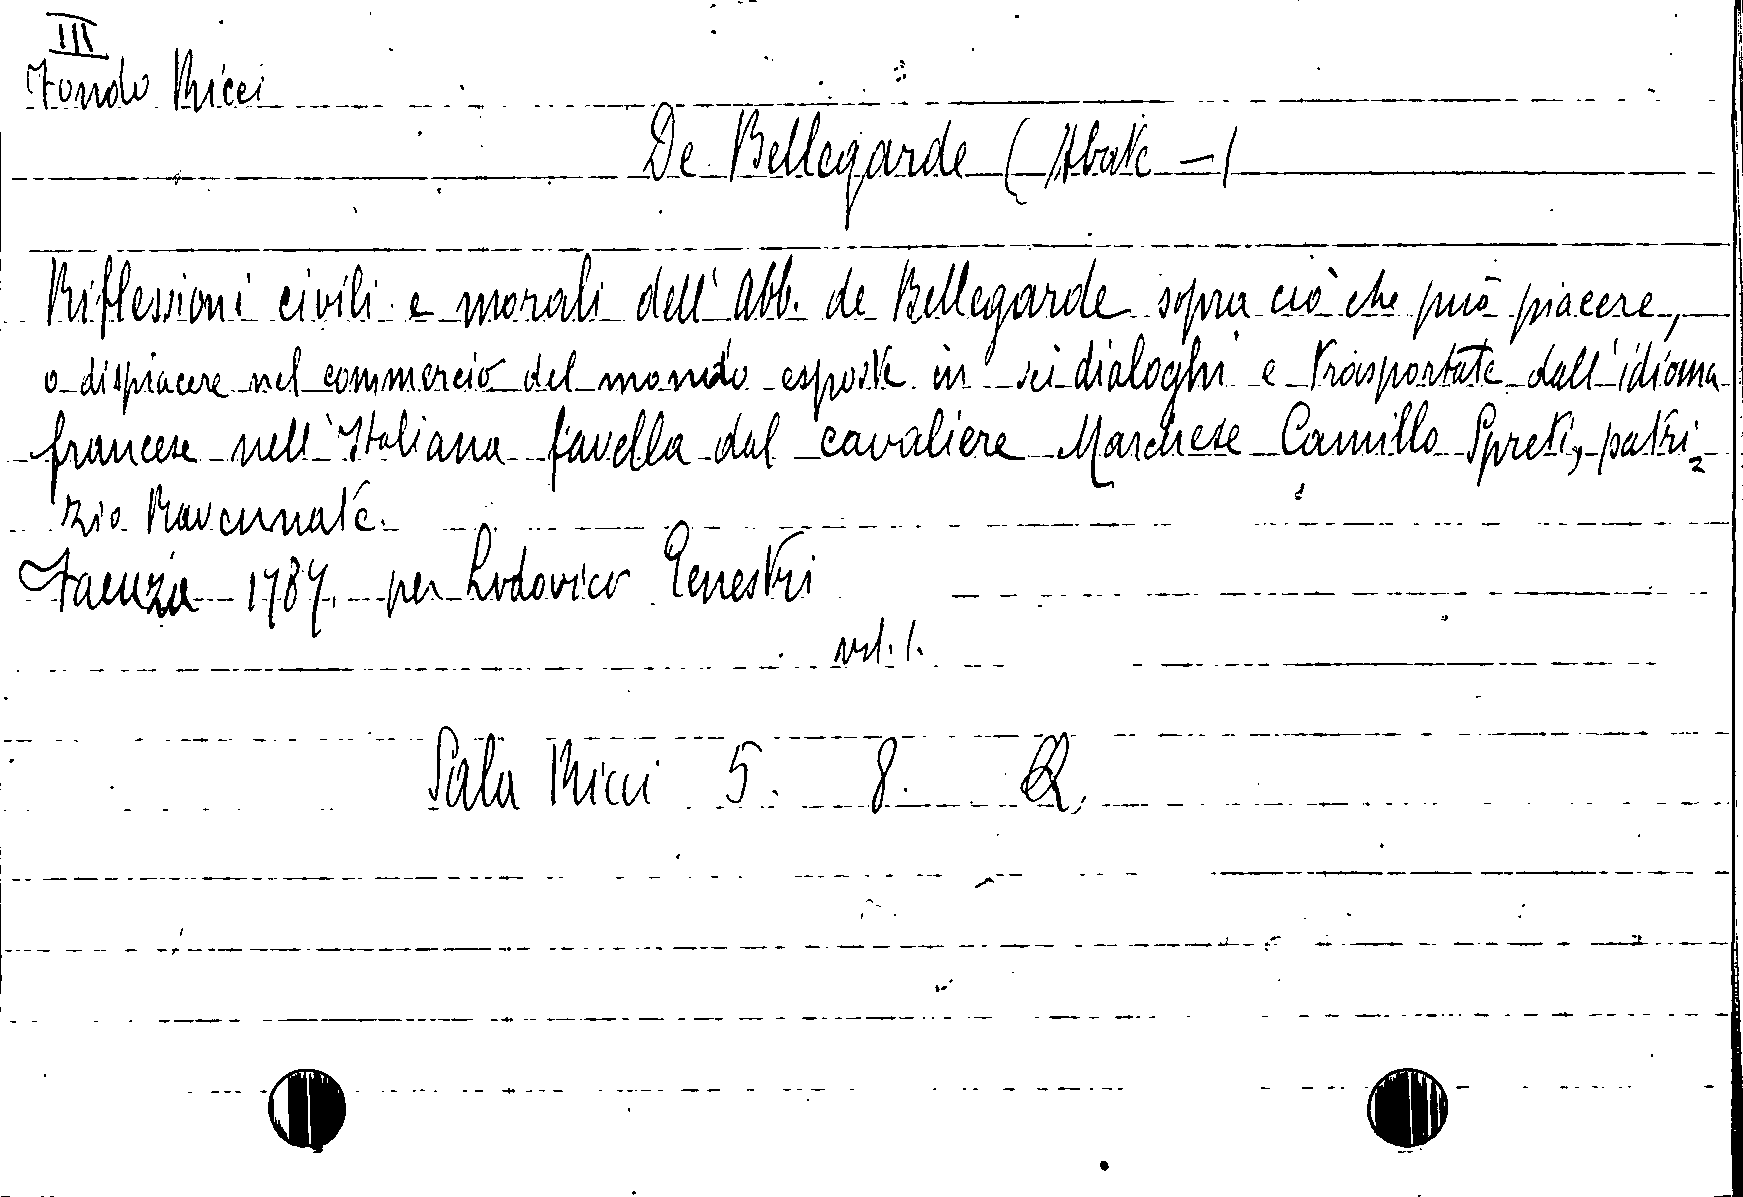 III
Fondo Ricci
De Bellegarde (Abate -)
Riflessioni civili e morali dell' Abb. de Bellegarde sopra ciò che può piacere,
o dispiacere nel commercio del mondo esposte in sei dialoghi e trasportate dall'idioma
francese nell'Italiana favella dal cavaliere Marchese Camillo Spreti, patri=
zio Ravennate.
Faenza 1787. per Lodovico Genestri
vol. 1.
Sala Ricci 5. 8. Q.